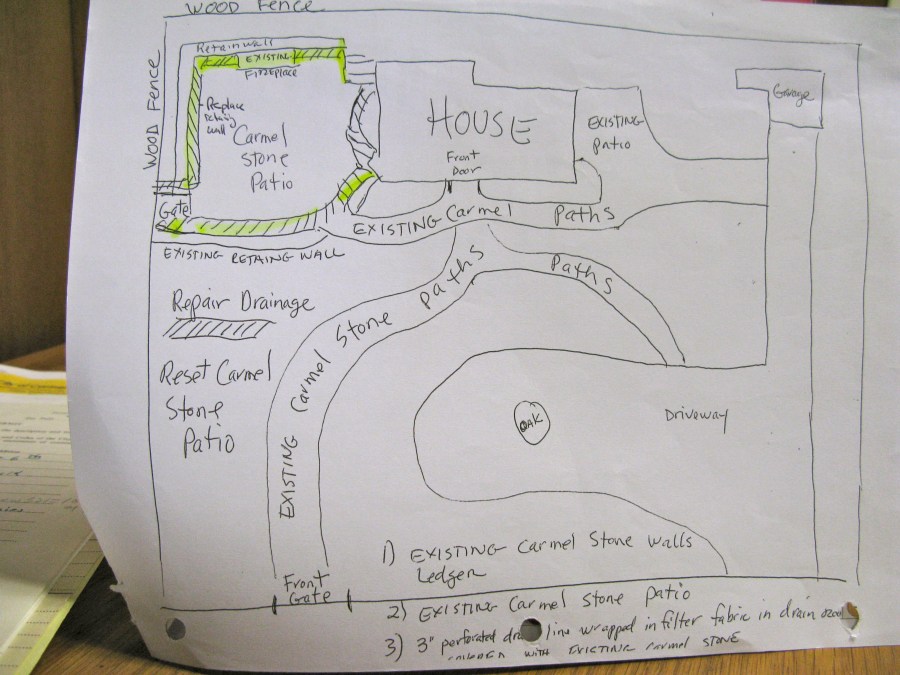 WOOD FENCE
Retain wall
EXISTING
FIREPLACE
WOOD FENCE
Replace
retaing
wall
Carmel
Stone
Patio
HOUSE
Front
Door
EXISTING
Patio
Garage
Gate
EXISTING Carmel Paths
EXISTING RETAING WALL
Paths
Repair Drainage
Reset Carmel
Stone
Patio
EXISTING Carmel Stone Paths
OAK
Driveway
Front
Gate
1) EXISTING Carmel Stone Walls
Ledger
2) EXISTING Carmel Stone Patio
3) 3" perforated line wrapped in filter fabric in drain
WITH EXISTING Carmel STONE